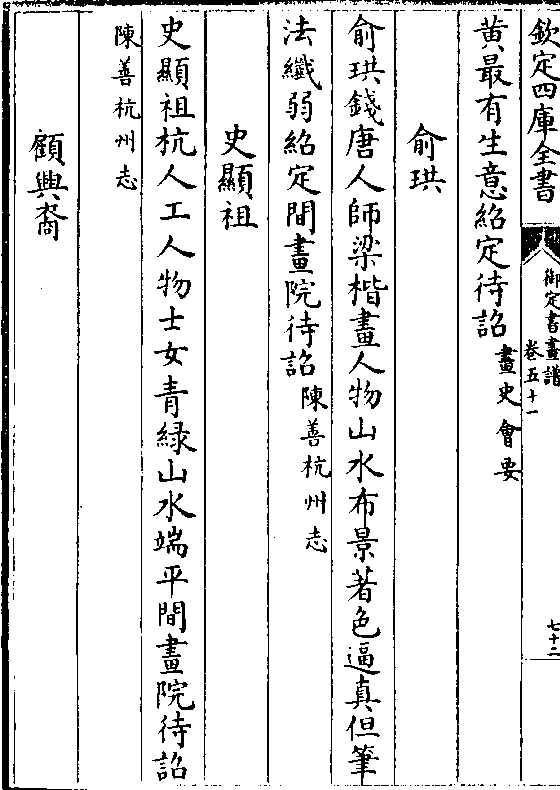 欽定四庫全書
御定書畫譜
卷五十一
七十二
黄最有生意紹定待詔畫史會要
俞珙
俞珙錢唐人師梁楷畫人物山水布景著色逼真但筆
法纖弱紹定間畫院待詔陳善杭州志
史顯祖
史顯祖杭人工人物士女青綠山水端平間畫院待詔
陳善杭州志
顧興裔